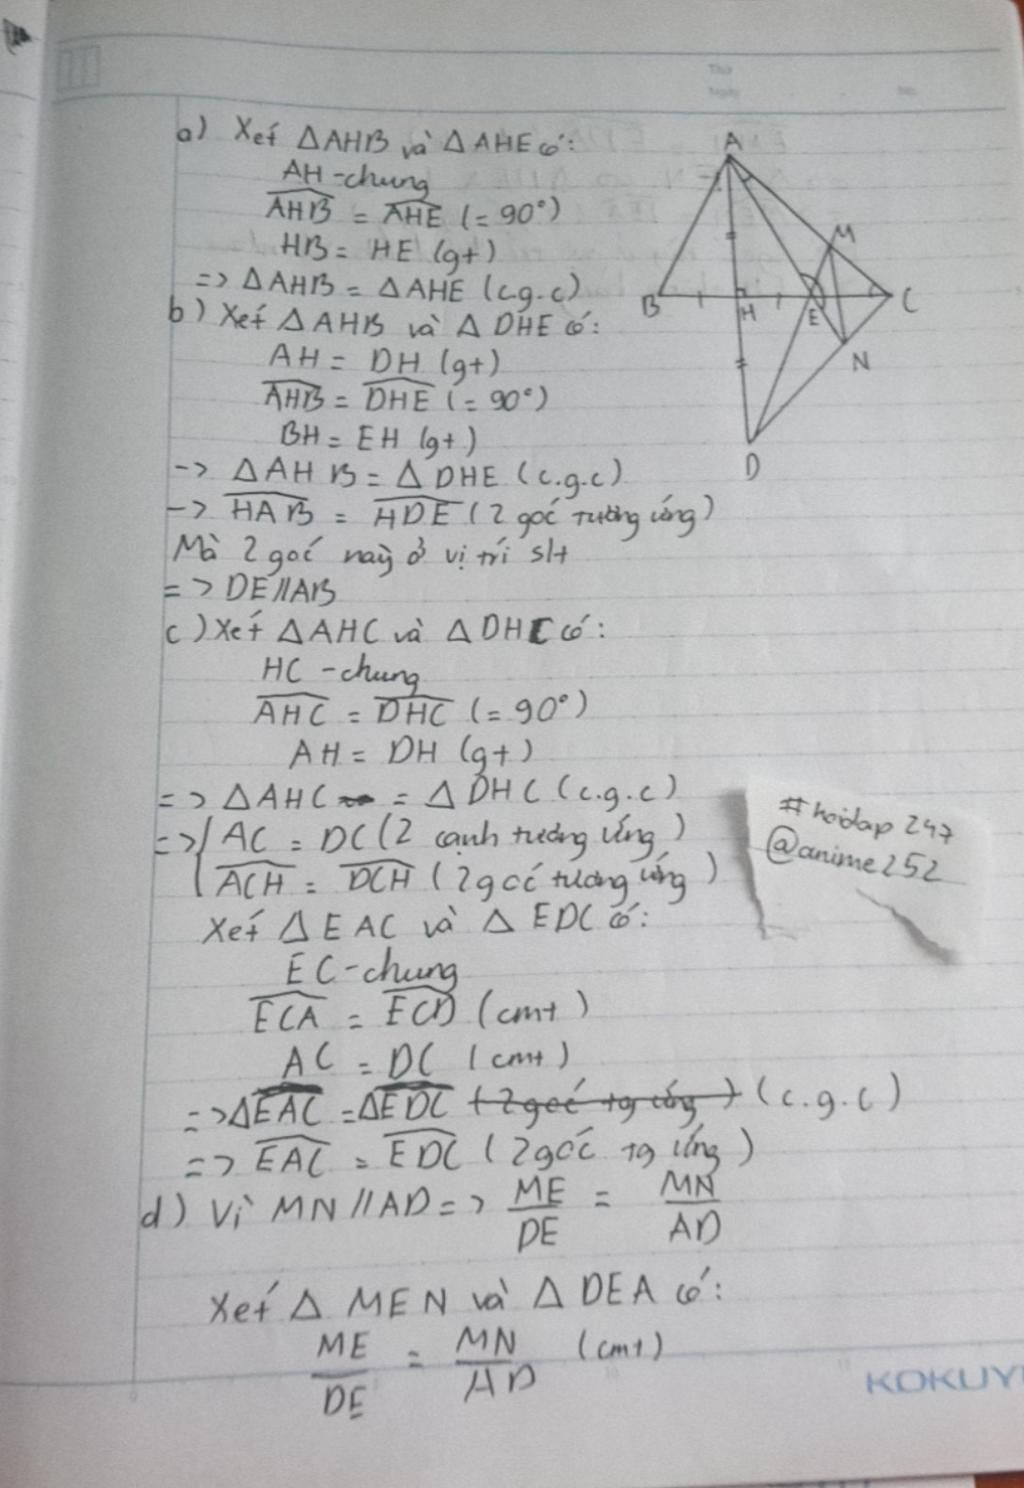 a) Xét ΔAHB và ΔAHE có:
AH - chung
AHB = AHE (= 90°)
HB = HE (gt)
=> ΔAHB = ΔAHE (c.g.c)
b) Xét ΔAHB và ΔDHE có:
AH = DH (gt)
AHB = DHE (= 90°)
BH = EH (gt)
-> ΔAHB = ΔDHE (c.g.c)
-> HAB = HDE (2 goć tương ứng)
Mà 2 goć này ở vị trí slt
=> DE//AB
c) Xét ΔAHC và ΔDHC có:
HC - chung
AHC = DHC (= 90°)
AH = DH (gt)
=> ΔAHC = ΔDHC (c.g.c)
=> AC = DC (2 cạnh tương ứng)
ACH = DCH (2 goć tương ứng)
Xét ΔEAC và ΔEDC có:
EC - chung
ECA = ECD (cmt)
AC = DC (cmt)
=> ΔEAC = ΔEDC (2 goć tg ứng) (c.g.c)
=> EAC = EDC (2 goć tg ứng)
d) Vì MN//AD => ME/DE = MN/AD
Xét ΔMEN và ΔDEA có:
ME/DE = MN/AD (cmt)
A
M
B
H
E
C
N
D
#hoidap247
@anime252
Thứ
Ngày
No.
KOKUY